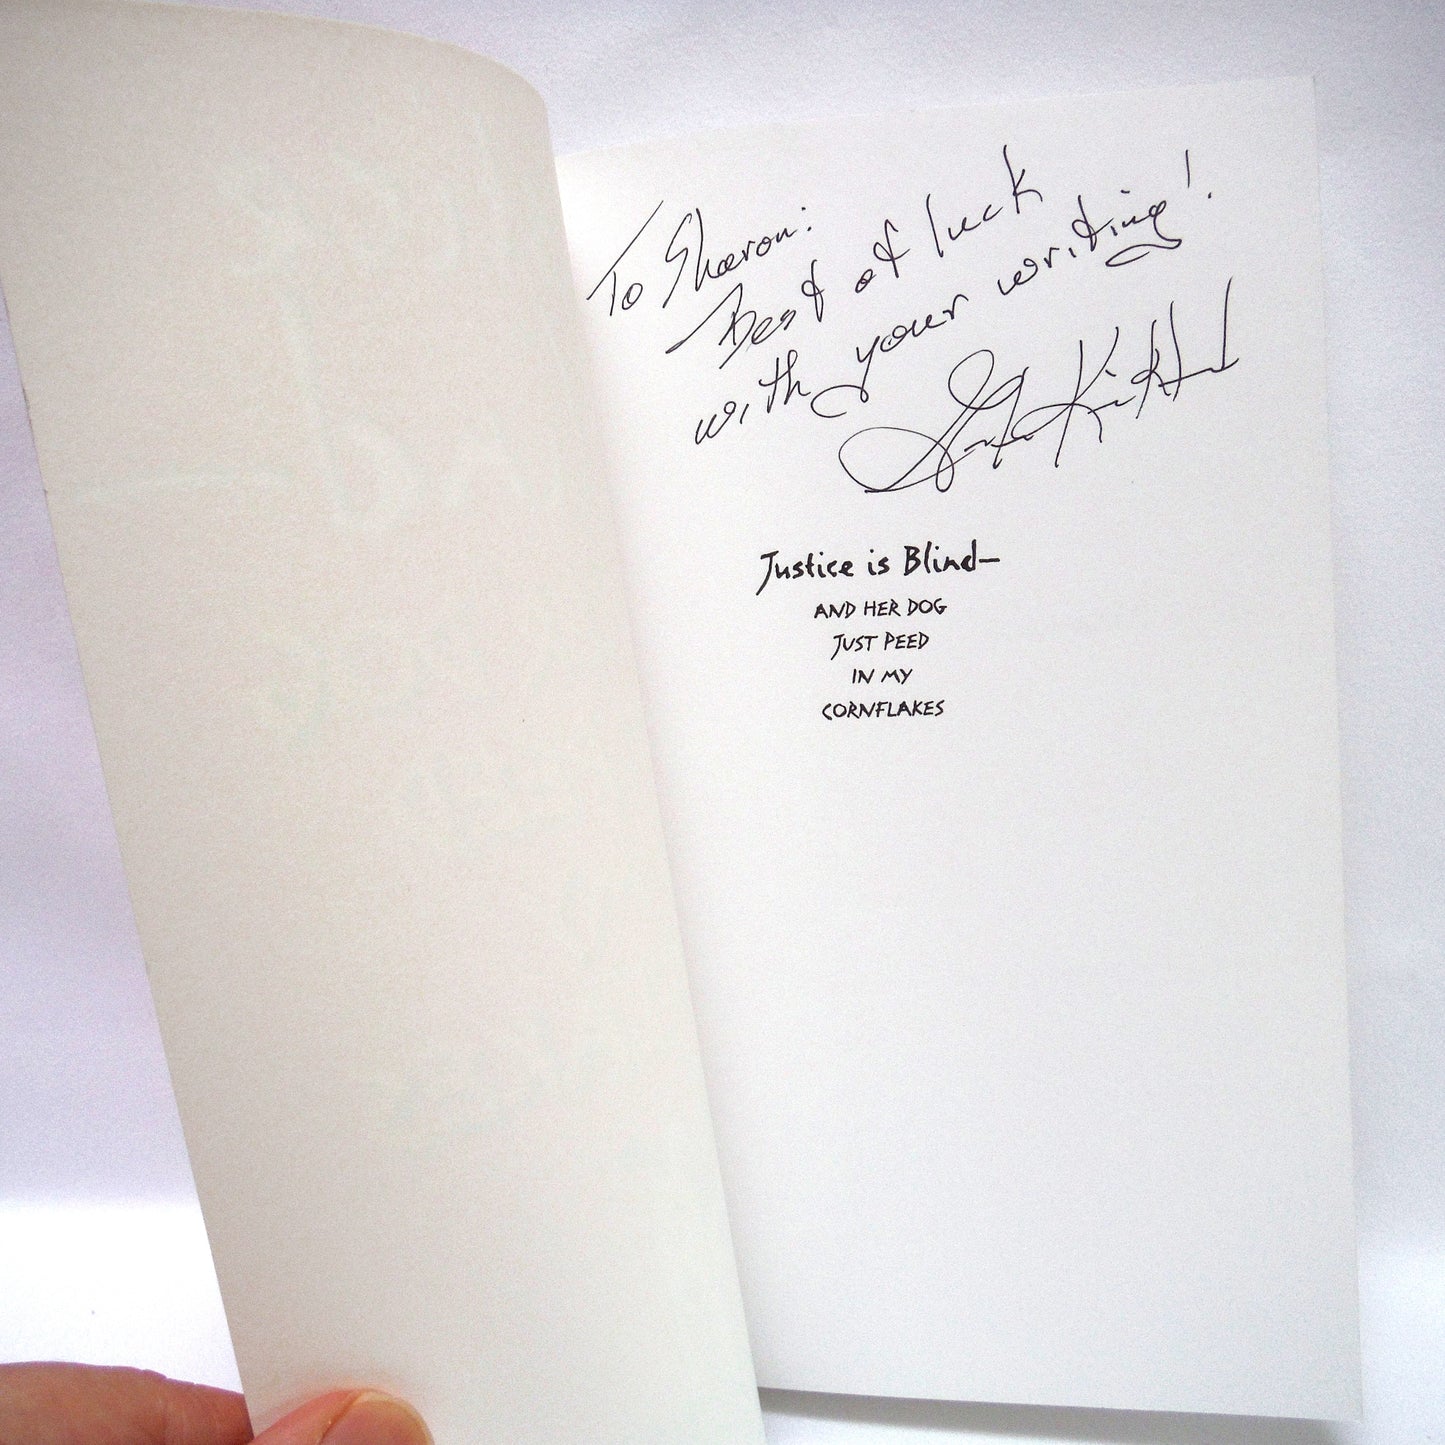 To Sharon:
Best of luck
with your writing!
Justice is Blind—
AND HER DOG
JUST PEED
IN MY
CORNFLAKES